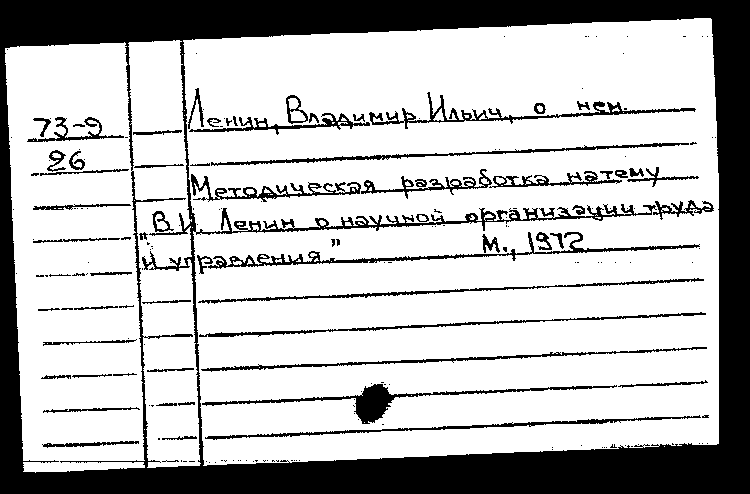 Ленин, Владимир Ильич, о нем.
73-9
26
Методическая разработка на тему
„В.И. Ленин о научной организации труда
и управления." М., 1972